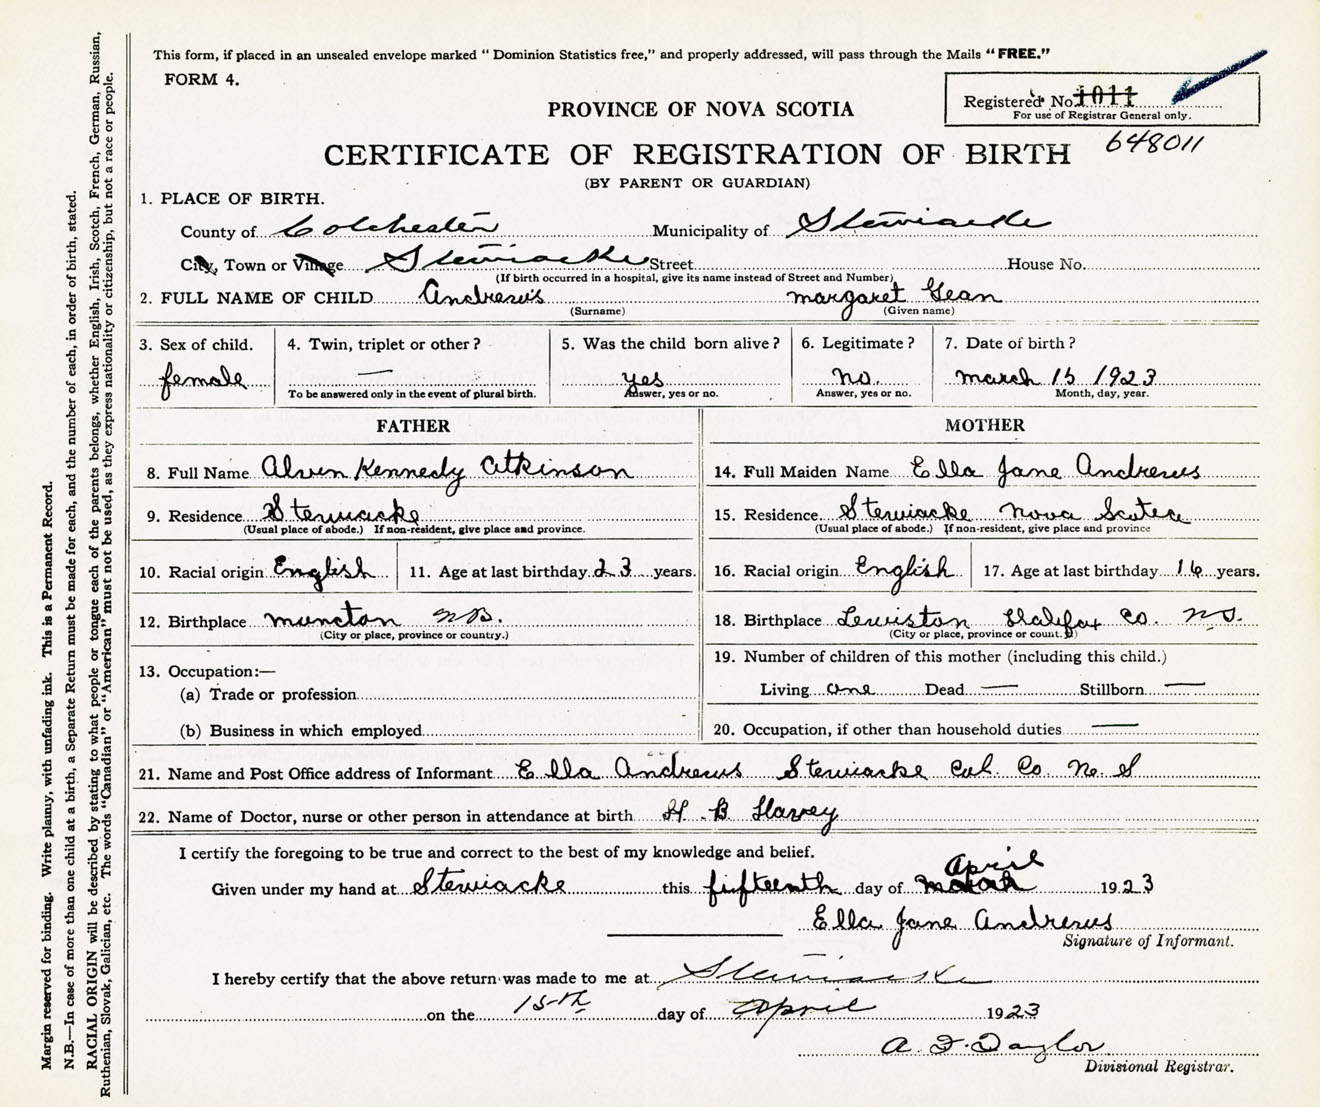 This form, if placed in an unsealed envelope marked " Dominion Statistics free," and properly addressed, will pass through the Mails "FREE."
FORM 4.
Registered No. 1011
For use of Registrar General only.
648011
PROVINCE OF NOVA SCOTIA
CERTIFICATE OF REGISTRATION OF BIRTH
(BY PARENT OR GUARDIAN)
1. PLACE OF BIRTH.
County of Colchester Municipality of Stewiacke
City, Town or Village Stewiacke Street House No.
(If birth occurred in a hospital, give its name instead of Street and Number)
2. FULL NAME OF CHILD Andrews margaret Jean
(Surname) (Given name)
3. Sex of child. 4. Twin, triplet or other? 5. Was the child born alive? 6. Legitimate? 7. Date of birth?
female — yes no. march 15 1923
To be answered only in the event of plural birth. Answer, yes or no. Answer, yes or no. Month, day, year.
FATHER MOTHER
8. Full Name Alven Kennedy Atkinson 14. Full Maiden Name Ella Jane Andrews
9. Residence Stewiacke 15. Residence Stewiacke Nova Scotia
(Usual place of abode.) If non-resident, give place and province. (Usual place of abode.) If non-resident, give place and province
10. Racial origin English 11. Age at last birthday 23 years. 16. Racial origin English 17. Age at last birthday 16 years.
12. Birthplace muncton N.B. 18. Birthplace Lewiston Halifax Co. N.S.
(City or place, province or country.) (City or place, province or count.y)
13. Occupation:— 19. Number of children of this mother (including this child.)
(a) Trade or profession Living one Dead — Stillborn —
(b) Business in which employed 20. Occupation, if other than household duties —
21. Name and Post Office address of Informant Ella Andrews Stewiacke Col. Co. N. S
22. Name of Doctor, nurse or other person in attendance at birth H. B Havey
I certify the foregoing to be true and correct to the best of my knowledge and belief.
April
Given under my hand at Stewiacke this fifteenth day of march 1923
Ella Jane Andrews
Signature of Informant.
I hereby certify that the above return was made to me at Stewiacke
on the 15th day of April 1923
A. F. Taylor
Divisional Registrar.
Margin reserved for binding. Write plainly, with unfading ink. This is a Permanent Record.
N.B.—In case of more than one child at a birth, a Separate Return must be made for each, and the number of each, in order of birth, stated.
RACIAL ORIGIN will be described by stating to what people or tongue each of the parents belongs, whether English, Irish, Scotch, French, German, Russian,
Ruthenian, Slovak, Galician, etc. The words "Canadian" or "American" must not be used, as they express nationality or citizenship, but not a race or people.